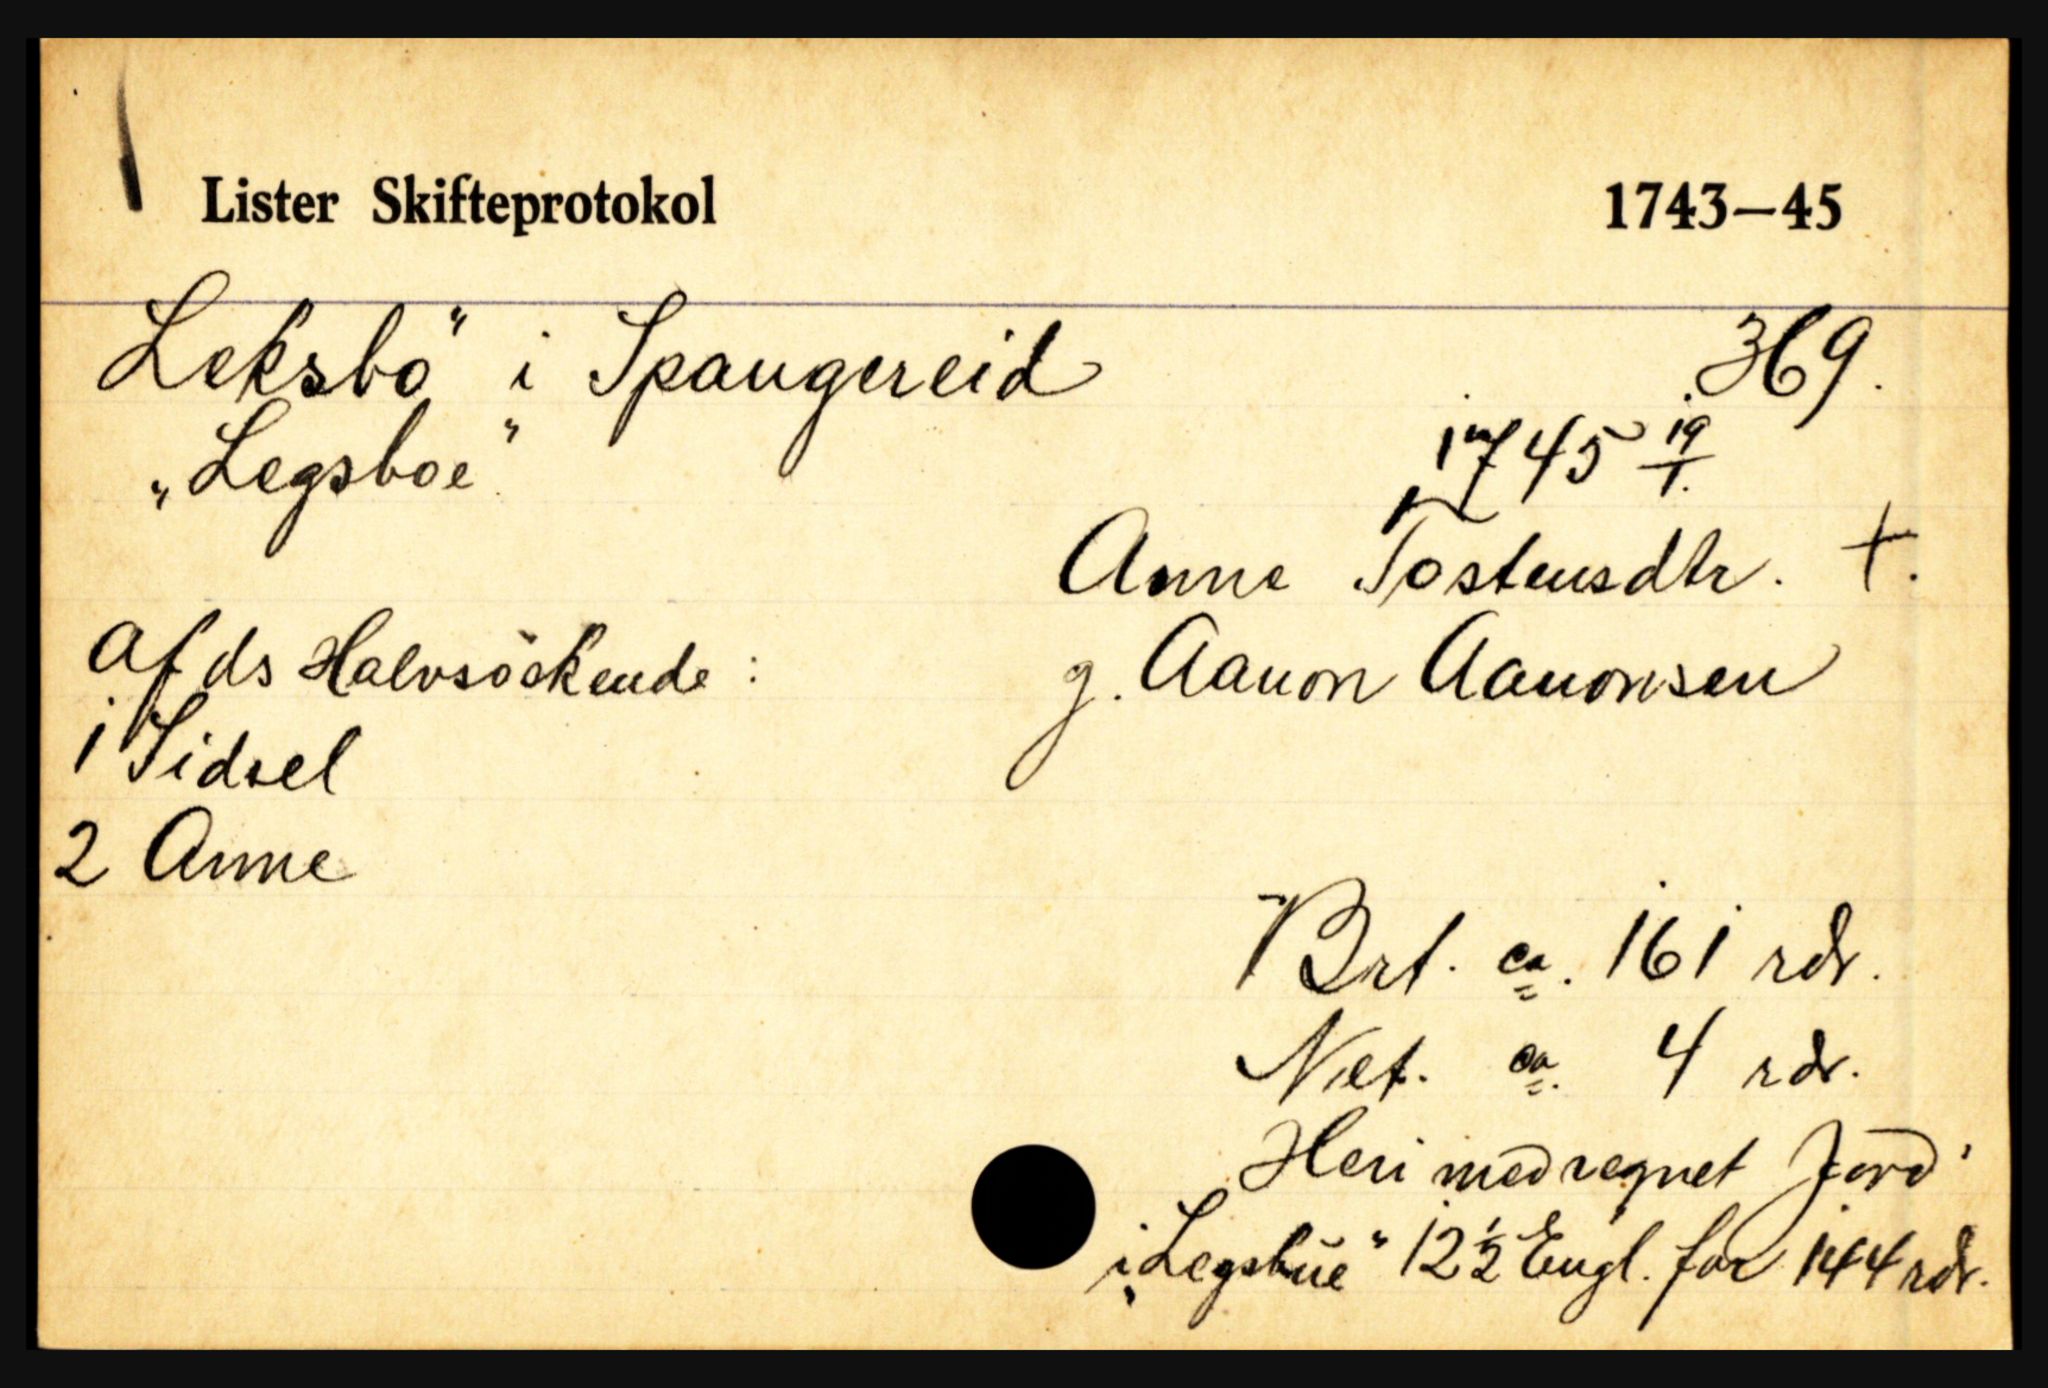 Lister Skifteprotokol 1743–45
Leksbö i Spangereid 369.
"Legsboe" 1745 19/1.
Anne Tostensdtr. †.
Afds Halvsöskende : g. Aanon Aanonsen
1 Sidsel
2 Anne
Brt. ca. 161 rdr.
Net. ca. 4 rdr.
Heri medregnet Jord
i "Legsbue" 12½ Engl. for 144 rdr.